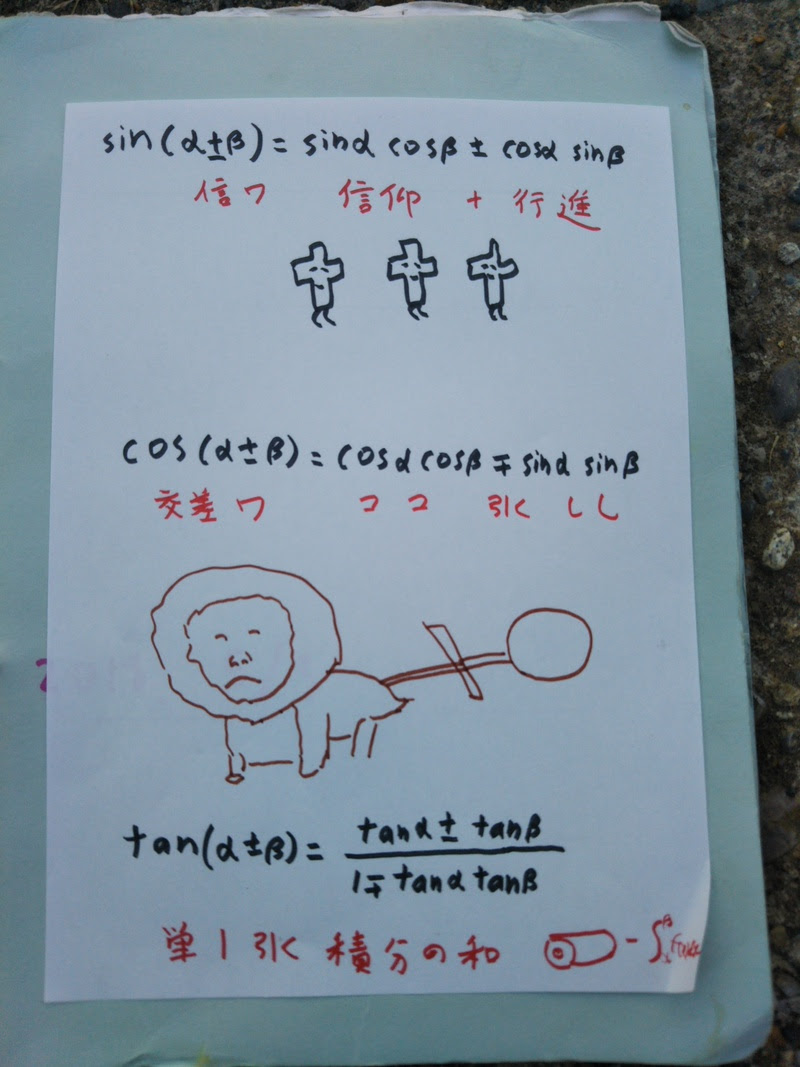 sin(α±β)=sinα cosβ ± cosα sinβ
信ワ 信仰 + 行進
cos(α±β)=cosα cosβ ∓ sinα sinβ
交差ワ ココ 引く しし
tan(α±β)= tanα ± tanβ
1∓tanα tanβ
単1引く積分の和